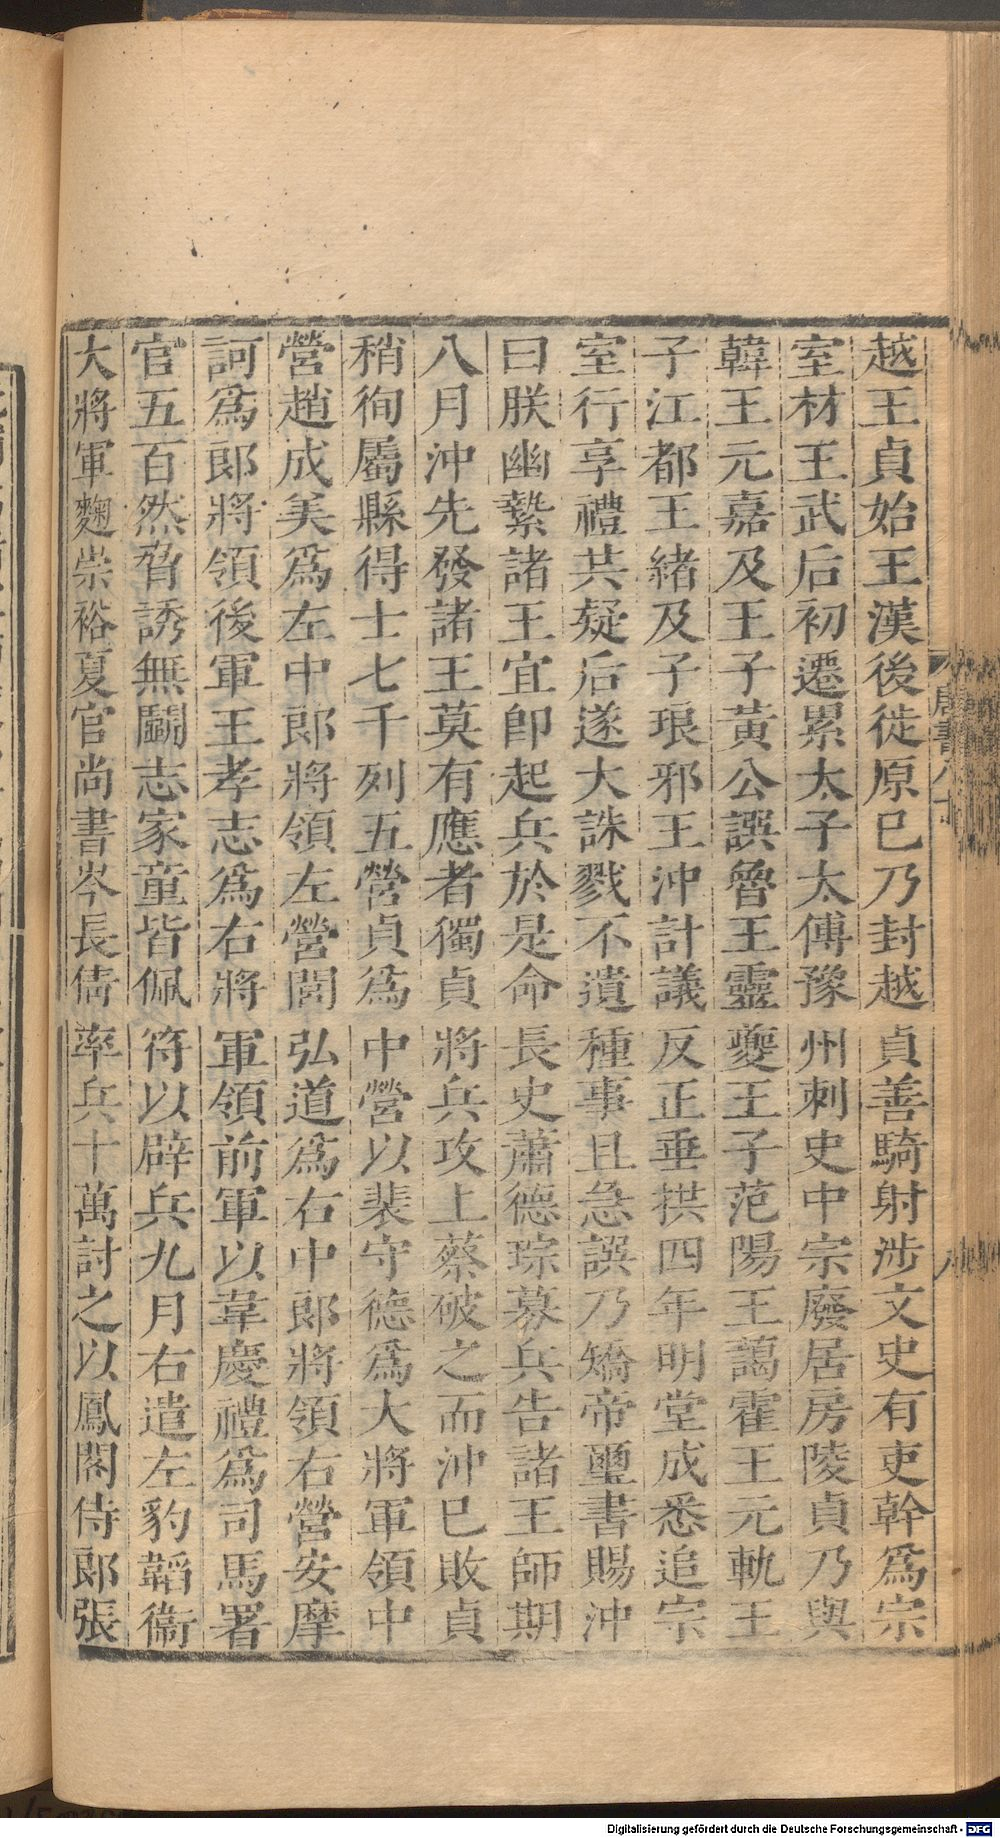 越王貞始王漢後徙原已乃封越貞善騎射涉文史有吏幹爲宗
室材王武后初遷累太子太傅豫州刺史中宗廢居房陵貞乃與
韓王元嘉及王子黃公譔魯王靈夔王子范陽王藹霍王元軌王
子江都王緒及子琅邪王沖計議反正垂拱四年明堂成悉追宗
室行享禮共疑后遂大誅戮不遺種事且急譔乃矯帝璽書賜沖
曰朕幽縶諸王宜卽起兵於是命長史蕭德琮募兵告諸王師期
八月沖先發諸王莫有應者獨貞將兵攻上蔡破之而沖已敗貞
稍徇屬縣得士七千列五營貞爲中營以裴守德爲大將軍領中
營趙成美爲左中郎將領左營閭弘道爲右中郎將領右營安摩
訶爲郎將領後軍王孝志爲右將軍領前軍以韋慶禮爲司馬署
官五百然脅誘無鬬志家童皆佩符以辟兵九月右遣左豹韜衞
大將軍麴崇裕夏官尚書岑長倩率兵十萬討之以鳳閣侍郎張
唐書八十
八
Digitalisierung gefördert durch die Deutsche Forschungsgemeinschaft - DFG